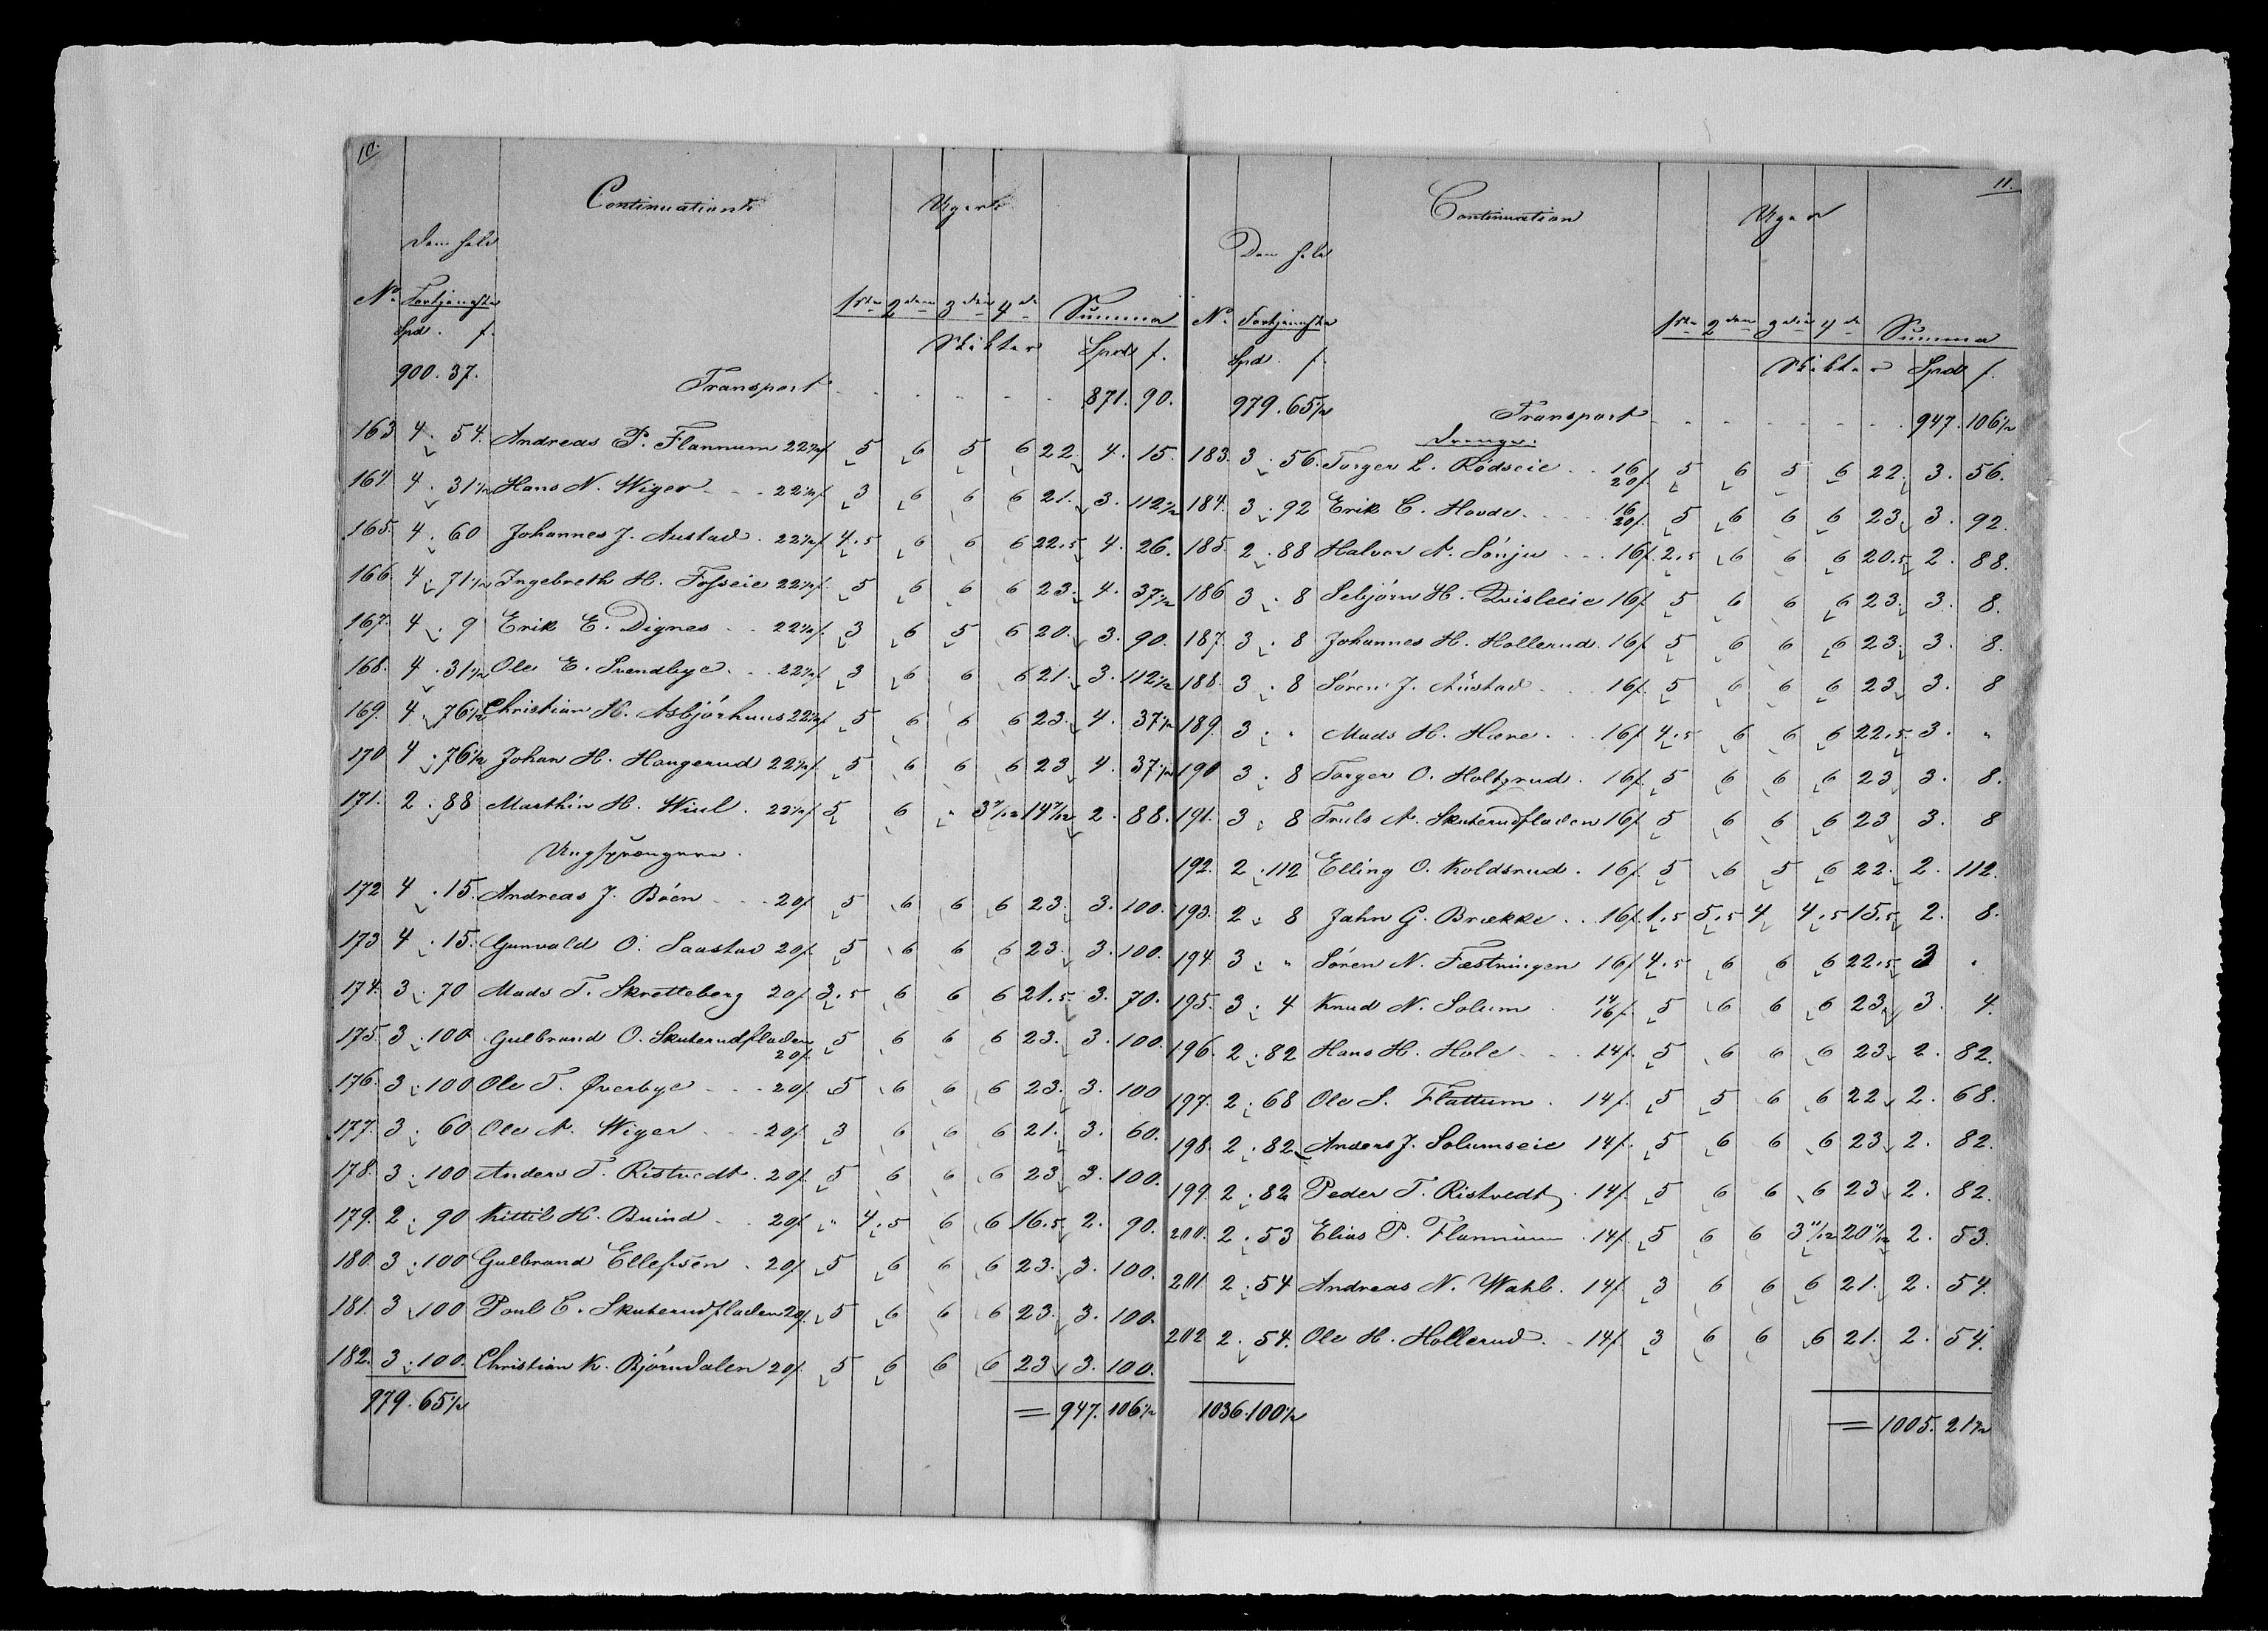 10.
Continuation
Uger
Den hele
No Fortjeneste 1ste 2den 3die 4de Summa
Spd. f. Skikter Spd f.
900. 37. Transport 871. 90.
163 4. 54. Andreas P. Flannum 22½f 5 6 5 6 22. 4. 15.
164 4. 31½ Hans N. Wiger 22½f 3 6 6 6 21. 3. 112½
165. 4. 60 Johannes J. Austad 22½f 4.5 6 6 6 22.5 4. 26.
166. 4. 71½ Ingebreth H. Fosseie 22½f 5 6 6 6 23. 4. 37½
167. 4. 9 Erik E. Dignes 22½f. 3 6 5 6 20. 3. 90.
168. 4. 31½ Ole E. Svendbye 22½f 3 6 6 6 21. 3. 112½
169. 4 76½ Christian H. Asbjörhuus 22½f 5 6 6 6 23. 4. 37½
170 4. 76½ Johan H. Haugerud 22½f. 5 6 6 6 23 4. 37½
171. 2. 88 Marthin H. Wiul. 22½f 5 6 " 3 7/12 14 7/12 2. 88.
172 4. 15. Andreas J. Böen 20f 5 6 6 6 23. 3. 100.
173 4. 15. Gunvald O. Saastad 20f. 5 6 6 6 23. 3. 100.
174. 3. 70 Mads T. Skretteberg 20f 3.5 6 6 6 21.5. 3. 70.
175. 3. 100. Gulbrand O. Skuterudfladen 5 6 6 6 23. 3. 100.
20f.
176. 3. 100 Ole T. Øverbye 20f. 5 6 6 6 23. 3. 100
177. 3. 60 Ole N. Wiger 20f 3 6 6 6 21. 3. 60.
178. 3. 100 Anders T. Ristvedt. 20f. 5 6 6 6 23 3. 100.
179. 2. 90 Kittil H. Buind 20f " 4.5 6 6 16.5 2. 90.
180. 3. 100 Gulbrand Ellefsen. 20f 5 6 6 6 23. 3. 100.
181. 3 100 Poul C. Skuterudfladen 20f. 5 6 6 6 23. 3. 100.
182. 3. 100. Christian K. Björndalen 20f. 5 6 6 6 23 3. 100.
979. 65½ = 947. 106½
11.
Continuation
Uger
Den hele
No. Fortjeneste 1ste 2den 3die 4de Summa
Spd. f. Skikter Spd f.
979. 65½ Transport 947. 106½
Drenge:
183. 3. 56. Torger L. Rödseie 16/20f. 5 6 5 6 22. 3. 56.
184. 3. 92 Erik C. Hovde. 16/20f. 5 6 6 6 23 3. 92.
185. 2. 88 Halvor A. Sönju 16f. 2.5 6 6 6 20.5 2. 88.
186 3. 8 Sebjörn H. Qvisleeie 16f 5 6 6 6 23. 3. 8.
187. 3. 8 Johannes H. Hollerud. 16f 5 6 6 6 23. 3. 8.
188. 3. 8 Sören J. Austad 16f. 5 6 6 6 23 3. 8
189. 3. " Mads H. Hære. 16f 4.5 6 6 6 22.5. 3. "
190 3. 8 Torger O. Holtgrud. 16f. 5 6 6 6 23 3. 8.
191. 3. 8 Truls A. Skuterudfladen 16f 5 6 6 6 23 3. 8
192. 2. 112 Elling O. Koldsrud. 16f. 5 6 5 6 22. 2. 112.
193. 2. 8 Jahn G. Brække. 16f 1.5 5.5 4 4.5 15.5 2. 8.
194. 3. " Sören N. Fæstningen 16f 4.5 6 6 6 22.5 3 "
195. 3. 4 Knud N. Solum 14/16f. 5 6 6 6 23. 3. 4.
196. 2. 82 Hans H. Hole 14f. 5 6 6 6 23 2. 82.
197. 2. 68 Ole S. Flattum. 14f. 5 5 6 6 22 2. 68.
198. 2. 82 Anders J. Solumseie 14f. 5 6 6 6 23 2. 82.
199. 2. 82 Peder T. Ristvedt. 14f. 5 6 6 6 23 2. 82.
200. 2. 53 Elias P. Flannum. 14f. 5 6 6 3 11/12 20 11/12 2. 53.
201 2. 54 Andreas N. Wahl. 14f. 3 6 6 6 21. 2. 54.
202 2. 54. Ole H. Hollerud. 14f. 3 6 6 6 21. 2. 54.
1036. 100½ = 1005. 21½